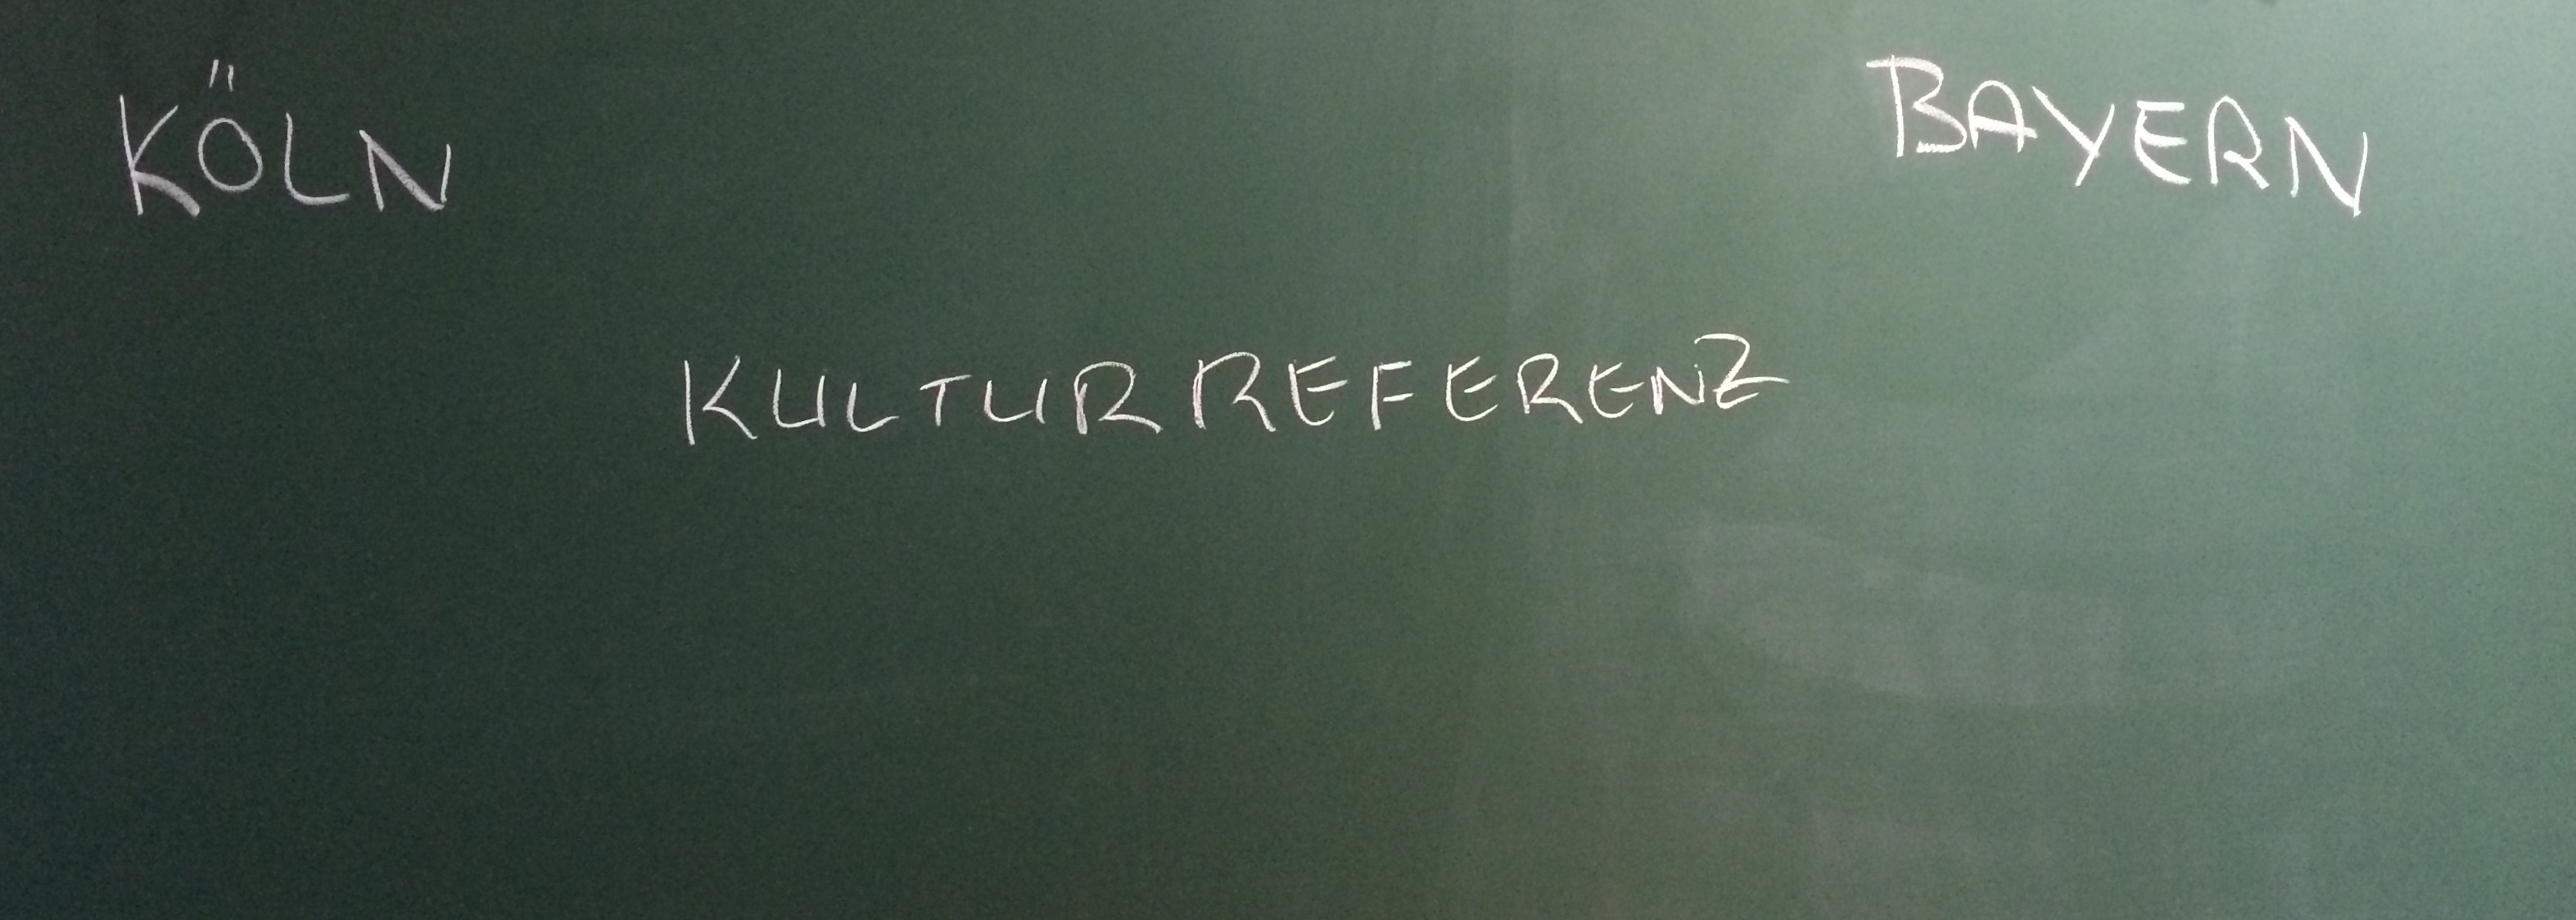 KÖLN
BAYERN
KULTURREFERENZ